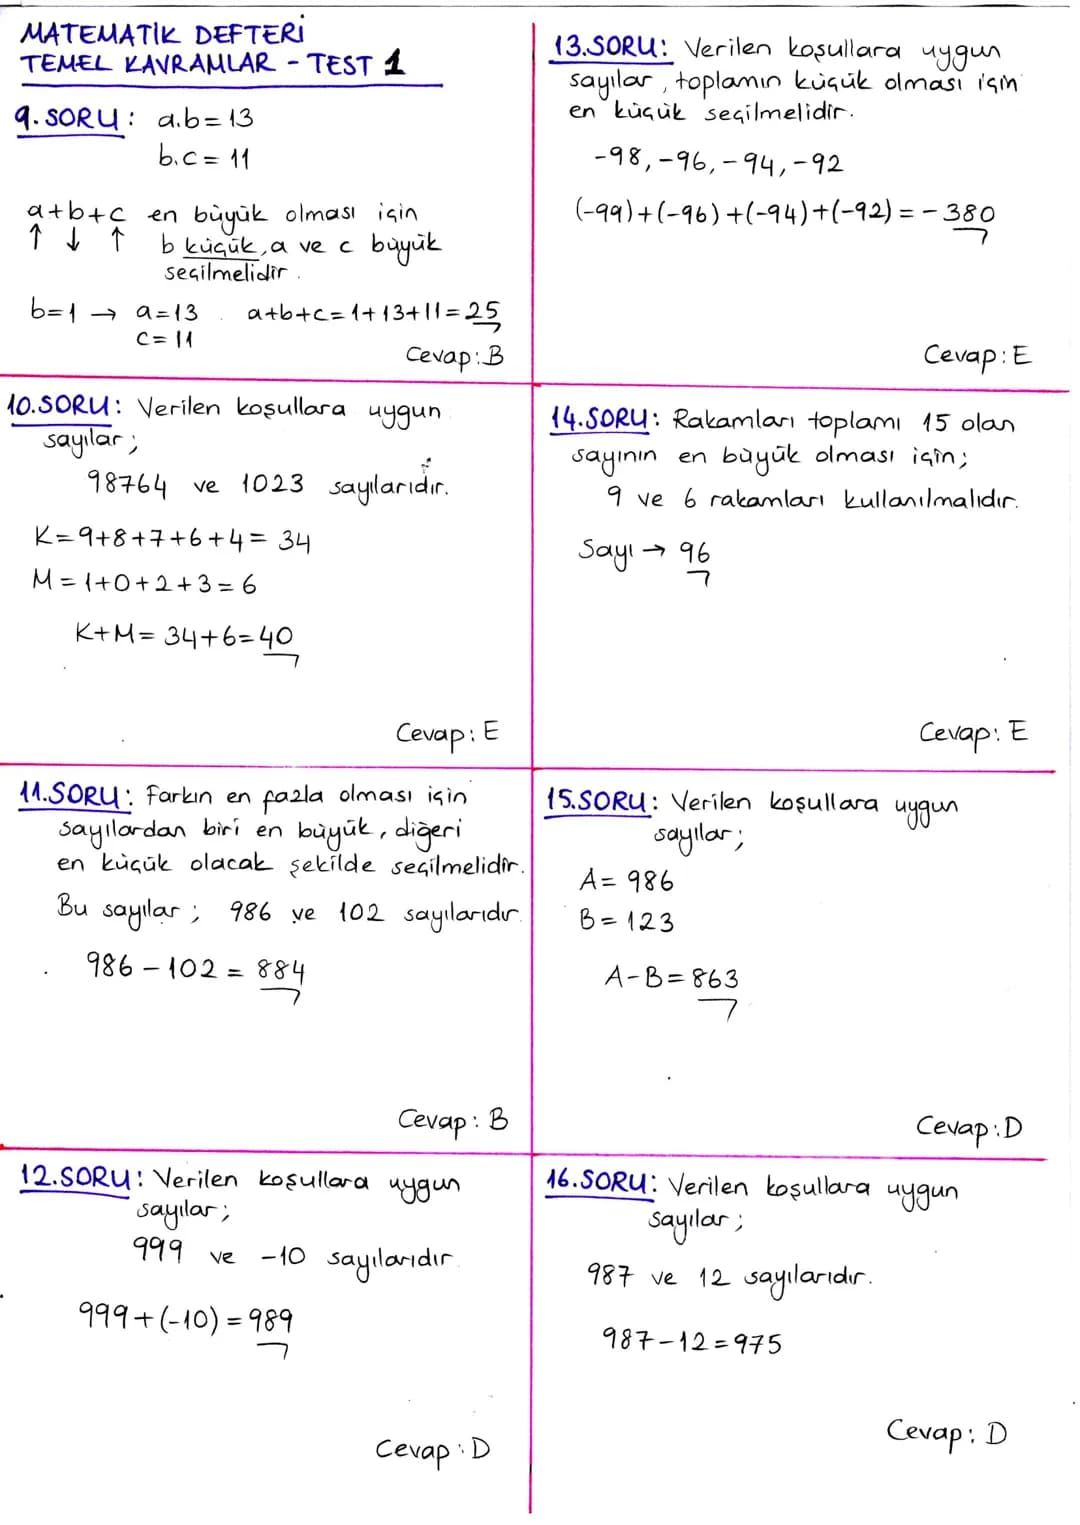 MATEMATİK DEFTERİ
TEMEL KAVRAMLAR - TEST 1
9. SORU: a.b=13
b.c= 11
a+b+c en büyük olması için
↑ ↓ ↑ b küçük, a ve c büyük
seçilmelidir.
b=1 → a=13 a+b+c=1+13+11=25
c=11
Cevap: B
10.SORU: Verilen koşullara uygun
sayılar;
98764 ve 1023 sayılarıdır.
K=9+8+7+6+4= 34
M=1+0+2+3=6
K+M= 34+6=40
Cevap: E
11.SORU: Farkın en fazla olması için
sayılardan biri en büyük, diğeri
en küçük olacak şekilde seçilmelidir.
Bu sayılar; 986 ve 102 sayılarıdır.
986-102= 884
Cevap: B
12.SORU: Verilen koşullara uygun
sayılar;
999 ve -10 sayılarıdır.
999+(-10)=989
Cevap: D
13.SORU: Verilen koşullara uygun
sayılar, toplamın küçük olması için
en küçük seçilmelidir.
-98, -96, -94, -92
(-99)+(-96)+(-94)+(-92)=-380
Cevap: E
14.SORU: Rakamları toplamı 15 olan
sayının en büyük olması için;
9 ve 6 rakamları kullanılmalıdır.
Sayı → 96
Cevap: E
15.SORU: Verilen koşullara uygun
sayılar;
A= 986
B= 123
A-B=863
Cevap: D
16.SORU: Verilen koşullara uygun
sayılar;
987 ve 12 sayılarıdır.
987-12=975
Cevap: D